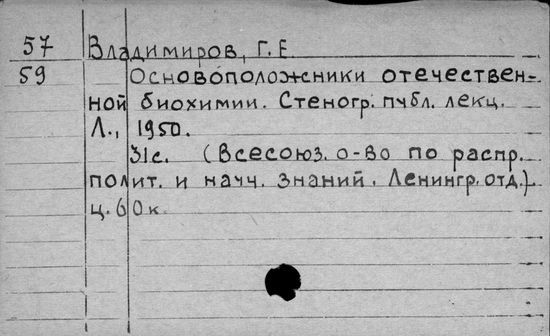 57 Владимиров, Г.Е.
59 Основоположники отечествен-
ной биохимии. Стеногр. публ. лекц.
Л., 1950.
31с. (Всесоюз. о-во по распр.
полит. и науч. знаний. Ленингр. отд.).
ц. 60к.